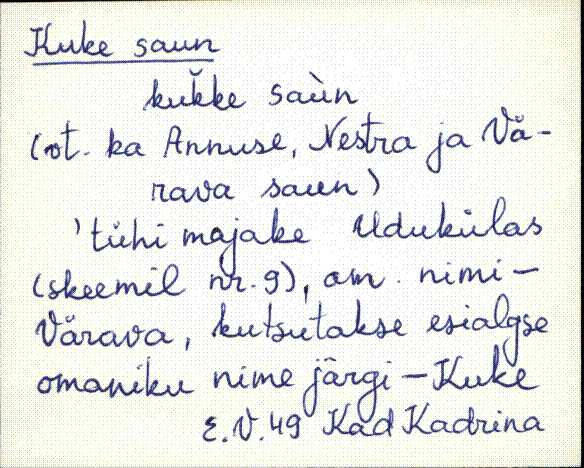 Kuke saun
kuk̆ke saùn
(vt. ka Annuse, Nestra ja Vä-
rava saun)
'tühi majake Udukülas
(skeemil nr. 9), am. nimi –
Värava, kutsutakse esialgse
omaniku nime järgi – Kuke
E.V. 49 Kad Kadrina